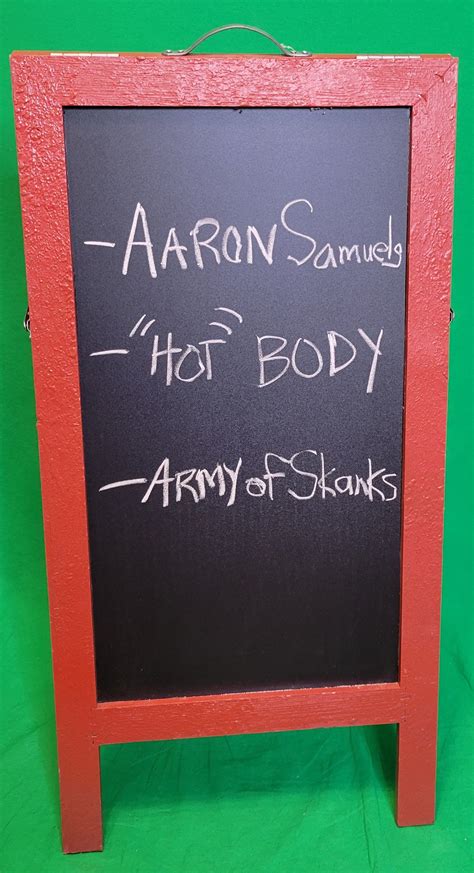 - AARON Samuels
- "HOT" BODY
- ARMY of Skanks